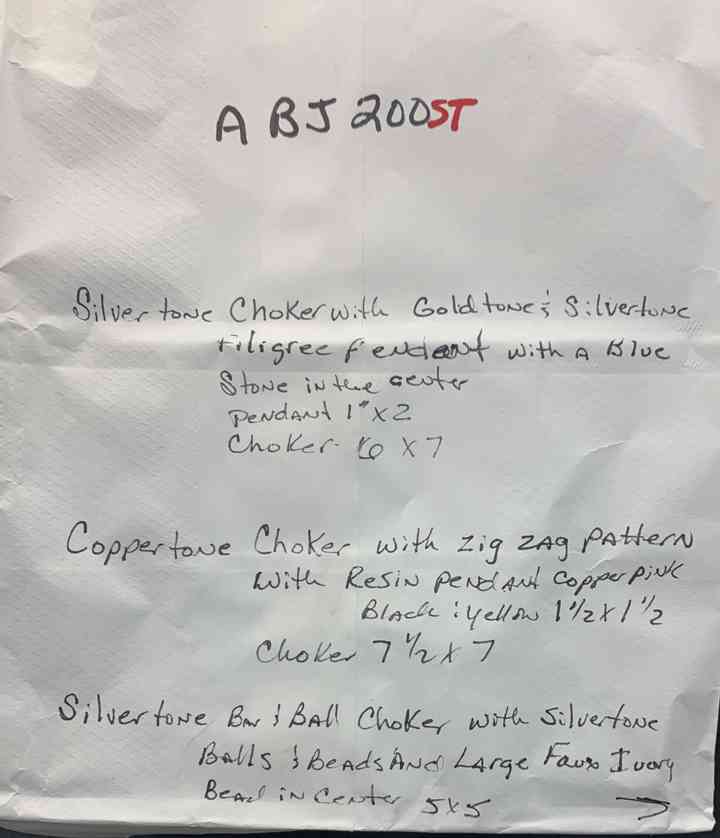 A BJ 200ST
Silvertone Choker with Goldtone & Silvertone
Filigree Pendant with A Blue
Stone in the center
Pendant 1" x 2
Choker - 6 x 7
Coppertone Choker with Zig Zag Pattern
with Resin Pendant Copper Pink
Black & Yellow 1 1/2 x 1 1/2
Choker 7 1/2 x 7
Silvertone Bar & Ball Choker with Silvertone
Balls & Beads And Large Faux Ivory
Bead in Center 5x5 →